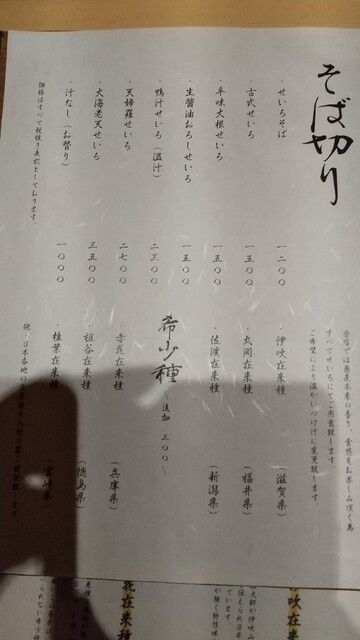 そば切り
当店では蕎麦本来の香り、食感をお楽しみ頂く為
すべてせいろにてご用意致します
ご希望により温かいつけ汁に変更致します
・せいろそば 一二〇〇
・古式せいろ 一五〇〇
・辛味大根せいろ 一五〇〇
・生醤油おろしせいろ 一五〇〇
・鴨汁せいろ(温汁) 二三〇〇
・天婦羅せいろ 二七〇〇
・大海老天せいろ 三五〇〇
・汁なし(お替り) 一〇〇〇
価格はすべて税抜き表記としております。
・伊吹在来種 (滋賀県)
・丸岡在来種 (福井県)
・佐渡在来種 (新潟県)
希少種 ~追加 三〇〇~
・赤花在来種 (兵庫県)
・祖谷在来種 (徳島県)
・椎葉在来種 (宮崎県)
吹在来種
花在来種